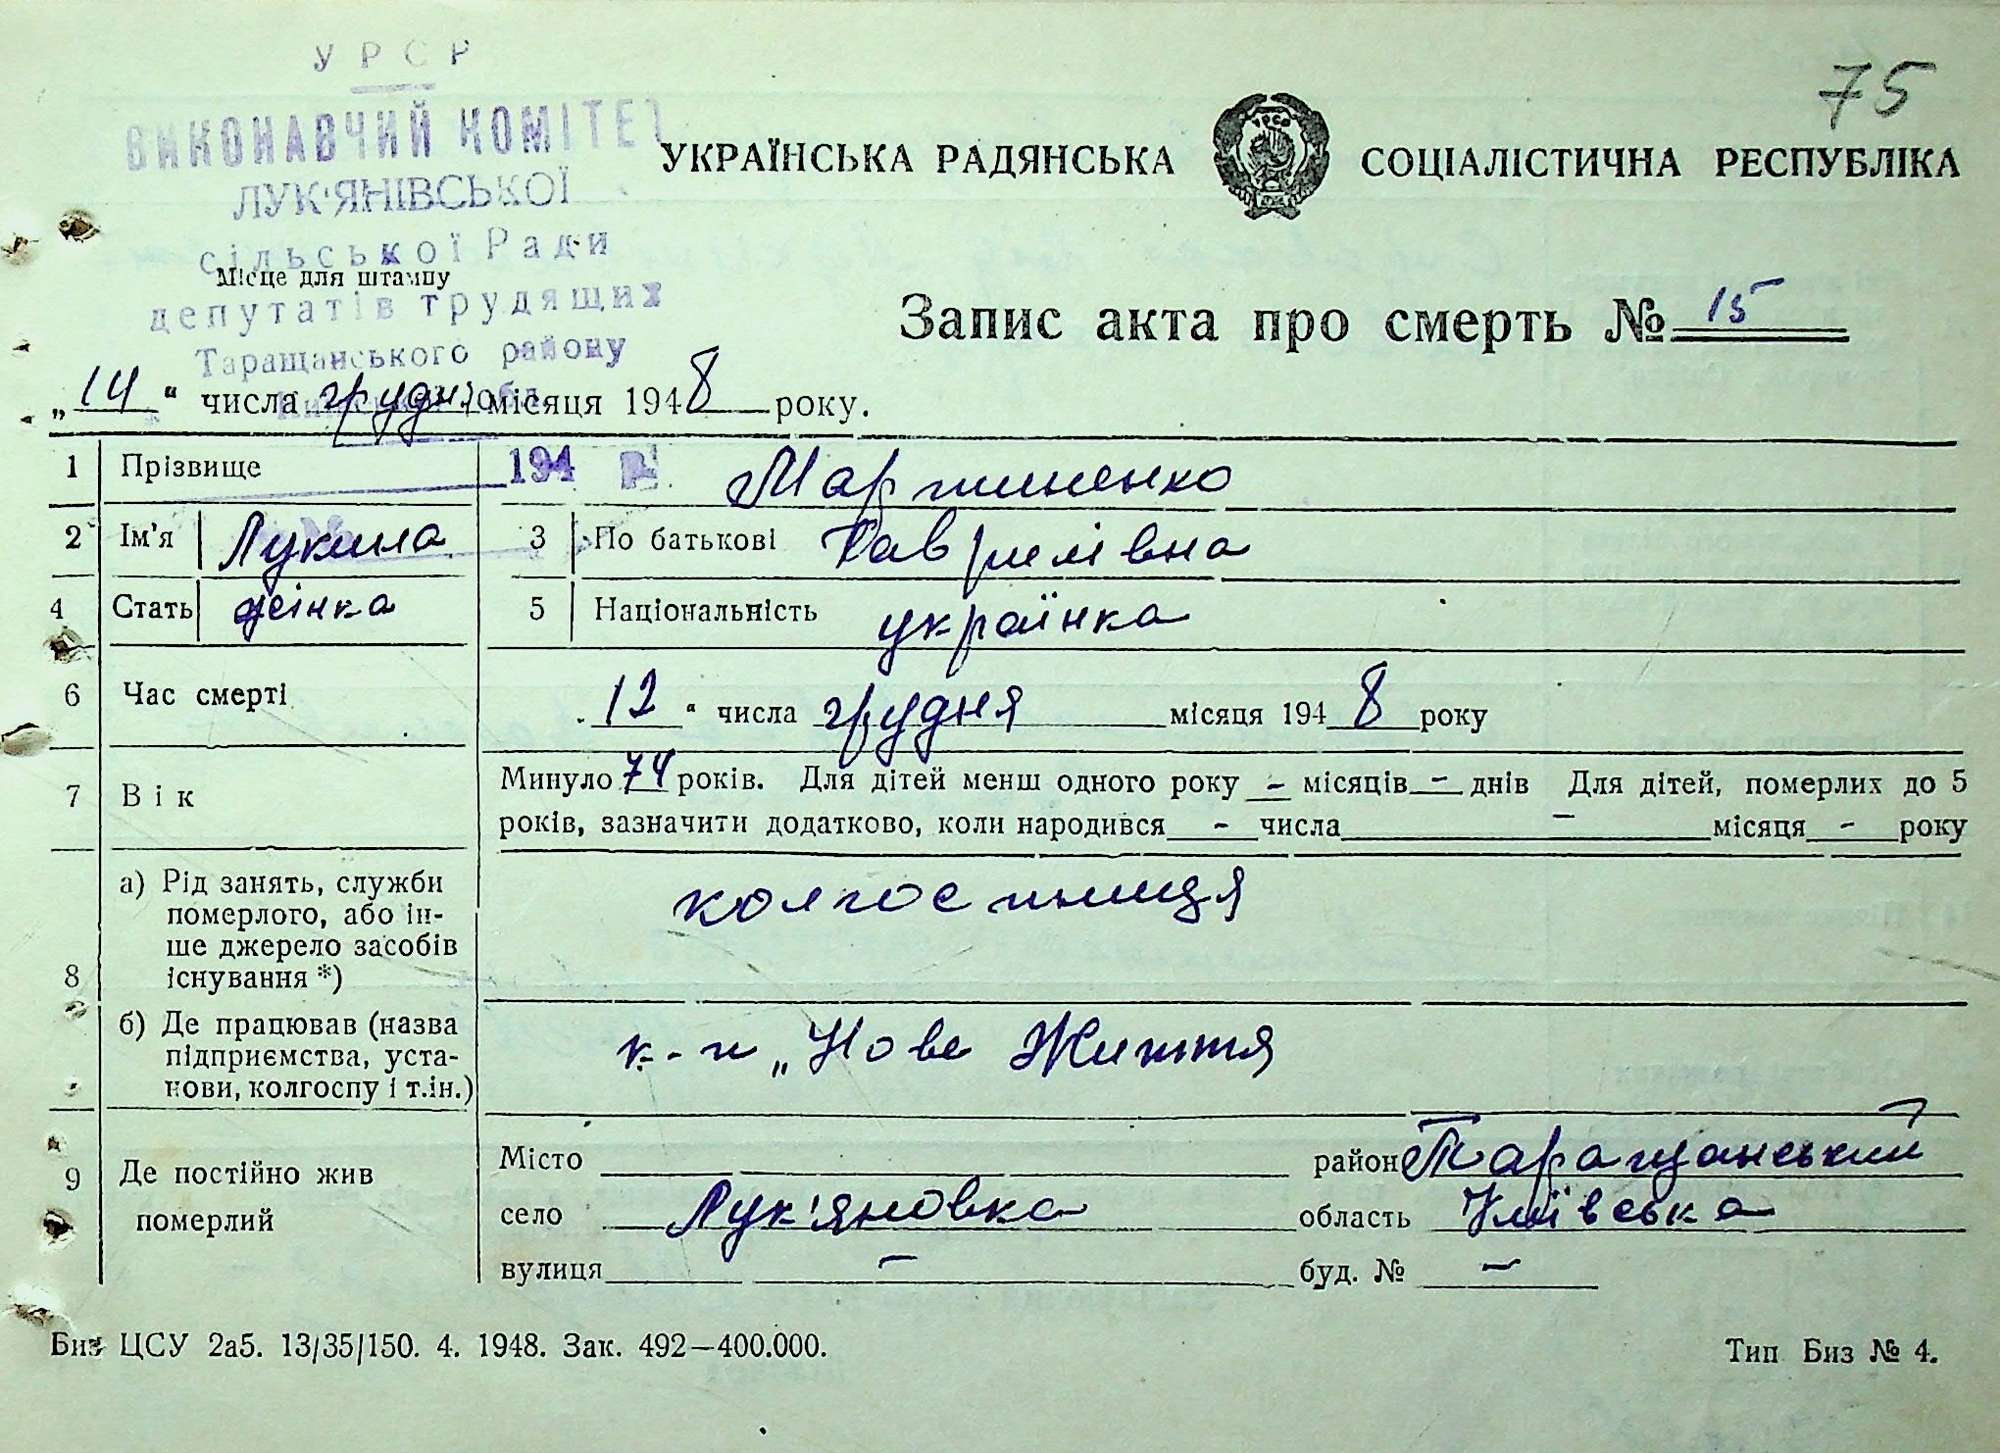 УРСР
ВИКОНАВЧИЙ КОМІТЕТ
ЛУК'ЯНІВСЬКОЇ
сільської Ради
депутатів трудящих
Таращанського району
194
75
УКРАЇНСЬКА РАДЯНСЬКА СОЦІАЛІСТИЧНА РЕСПУБЛІКА
УРСР
Місце для штампу
Запис акта про смерть № 15
„14" числа грудня місяця 1948 року.
1 Прізвище Мартиненко
2 Ім'я Лукина 3 По батькові Гаврилівна
4 Стать жінка 5 Національність українка
6 Час смерті „12" числа грудня місяця 1948 року
7 Вік Минуло 74 років. Для дітей менш одного року – місяців – днів Для дітей, померлих до 5
років, зазначити додатково, коли народився – числа – місяця – року
8 а) Рід занять, служби
померлого, або ін-
ше джерело засобів
існування *)
колгоспниця
б) Де працював (назва
підприємства, уста-
нови, колгоспу і т.ін.)
к-п „Нове Життя
9 Де постійно жив
померлий
Місто район Таращанський
село Лук'яновка область Київська
вулиця – буд. № –
Биз ЦСУ 2а5. 13/35/150. 4. 1948. Зак. 492—400.000.
Тип Биз № 4.